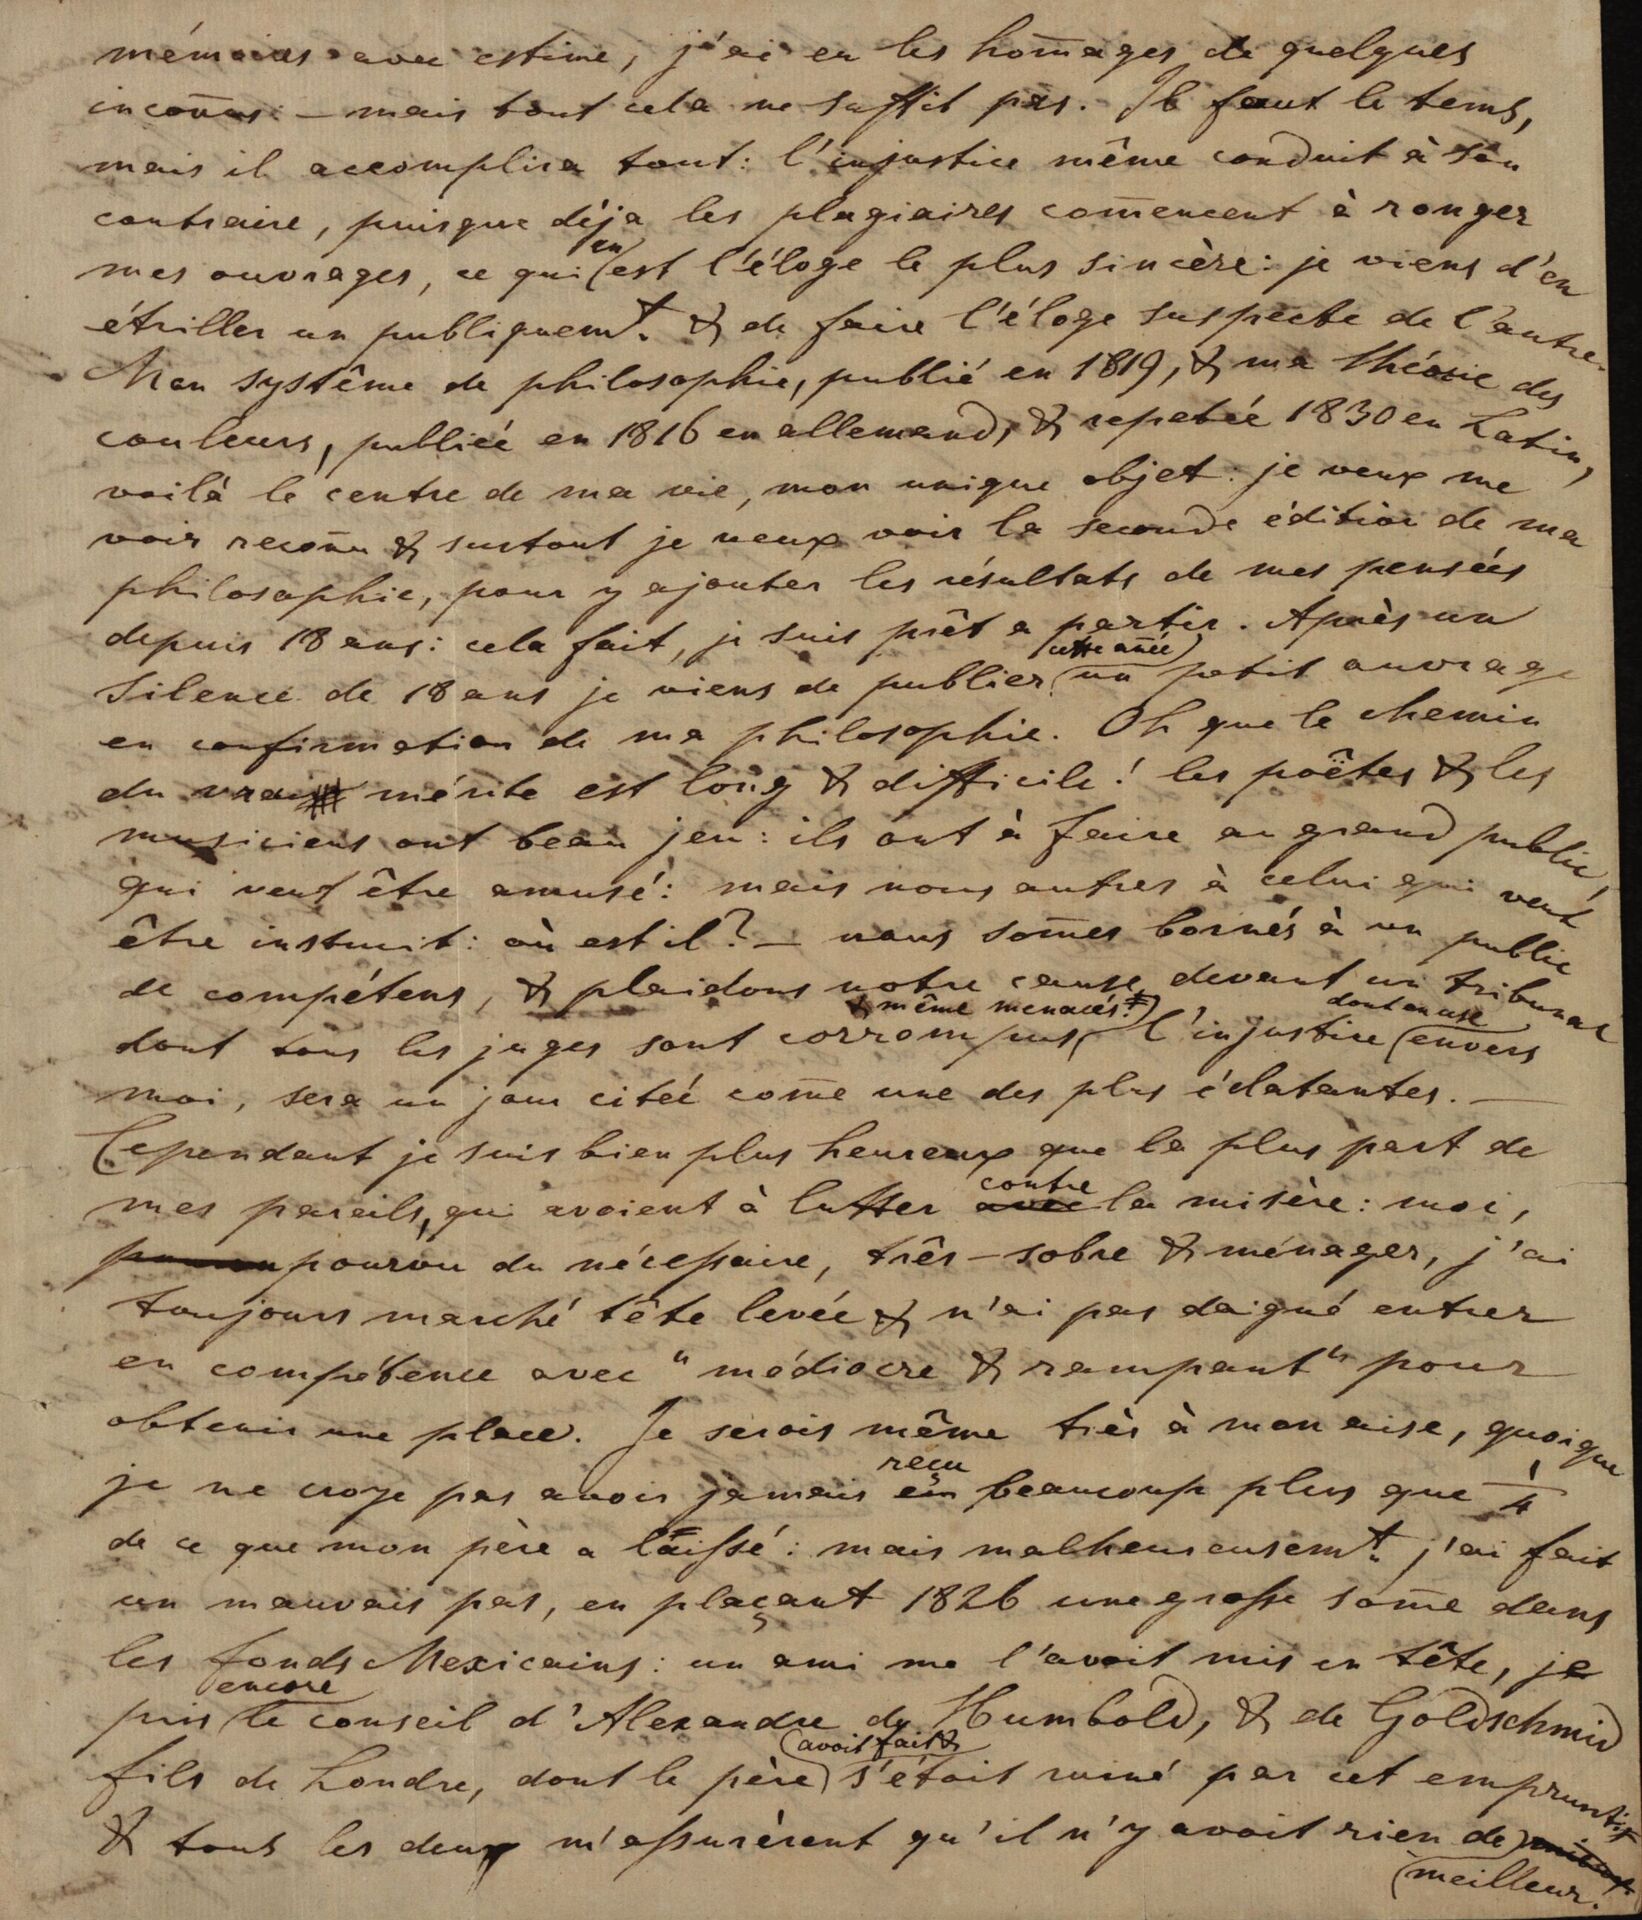 mémoires avec estime, j'ai eu les hom̄ages de quelques
incon̄us: – mais tout cela ne suffit pas. Il faut le tems,
mais il accomplira tout: l'injustice même conduit à son
contraire, puisque déja les plagiaires com̄encent à ronger
mes ouvrages, ce qui en est l'éloge le plus sincère: je viens d'en
étriller un publiquemt. & de faire l'éloge suspecte de l'autre.
Mon système de philosophie, publié en 1819, & ma théorie des
couleurs, publiée en 1816 en allemand, & repetée 1830 en Latin,
voilà le centre de ma vie, mon unique objet: je veux me
voir recon̄u & surtout je veux voir la seconde édition de ma
philosophie, pour y ajouter les résultats de mes pensées
depuis 18 ans: cela fait, je suis prêt a partir. Après un
silence de 18 ans je viens de publier cette an̄ée un petit ouvrage
en confirmation de ma philosophie. Oh que le chemin
du vrai mérite est long & difficile! les poëtes & les
musiciens ont beau jeu: ils ont à faire au grand public,
qui veut être amusé: mais nous autres à celui qui veut
être instruit: où est il? – nous som̄es bornés à un public
de compétens, & plaidons notre cause devant un tribunal
dont tous les juges sont corrompus & même menacés. L'injustice dont on use envers
moi, sera un jour citée com̄e une des plus éclatantes. —
Cependant je suis bien plus heureux que la plus part de
mes pareils, qui avoient à lutter avec contre la misère: moi,
pourvu du nécessaire, très-sobre & ménager, j'ai
toujours marché tête levée & n'ai pas daigné entrer
en compétence avec "médiocre & rampant" pour
obtenir une place. Je serois même très à mon aise, quoique
je ne croye pas avoir jamais eu reçu beaucoup plus que 1/4
de ce que mon père a laissé: mais malheureusemt. j'ai fait
un mauvais pas, en plaçant 1826 une grosse som̄e dans
les fonds Mexicains: un ami me l'avoit mis en tête, je
pris encore le conseil d'Alexandre de Humbold, & de Goldschmid
fils de Londre, dont le père avoit fait & s'étoit ruiné par cet emprunt:
& tous les deux m'assurèrent qu'il n'y avoit rien de
meilleur.